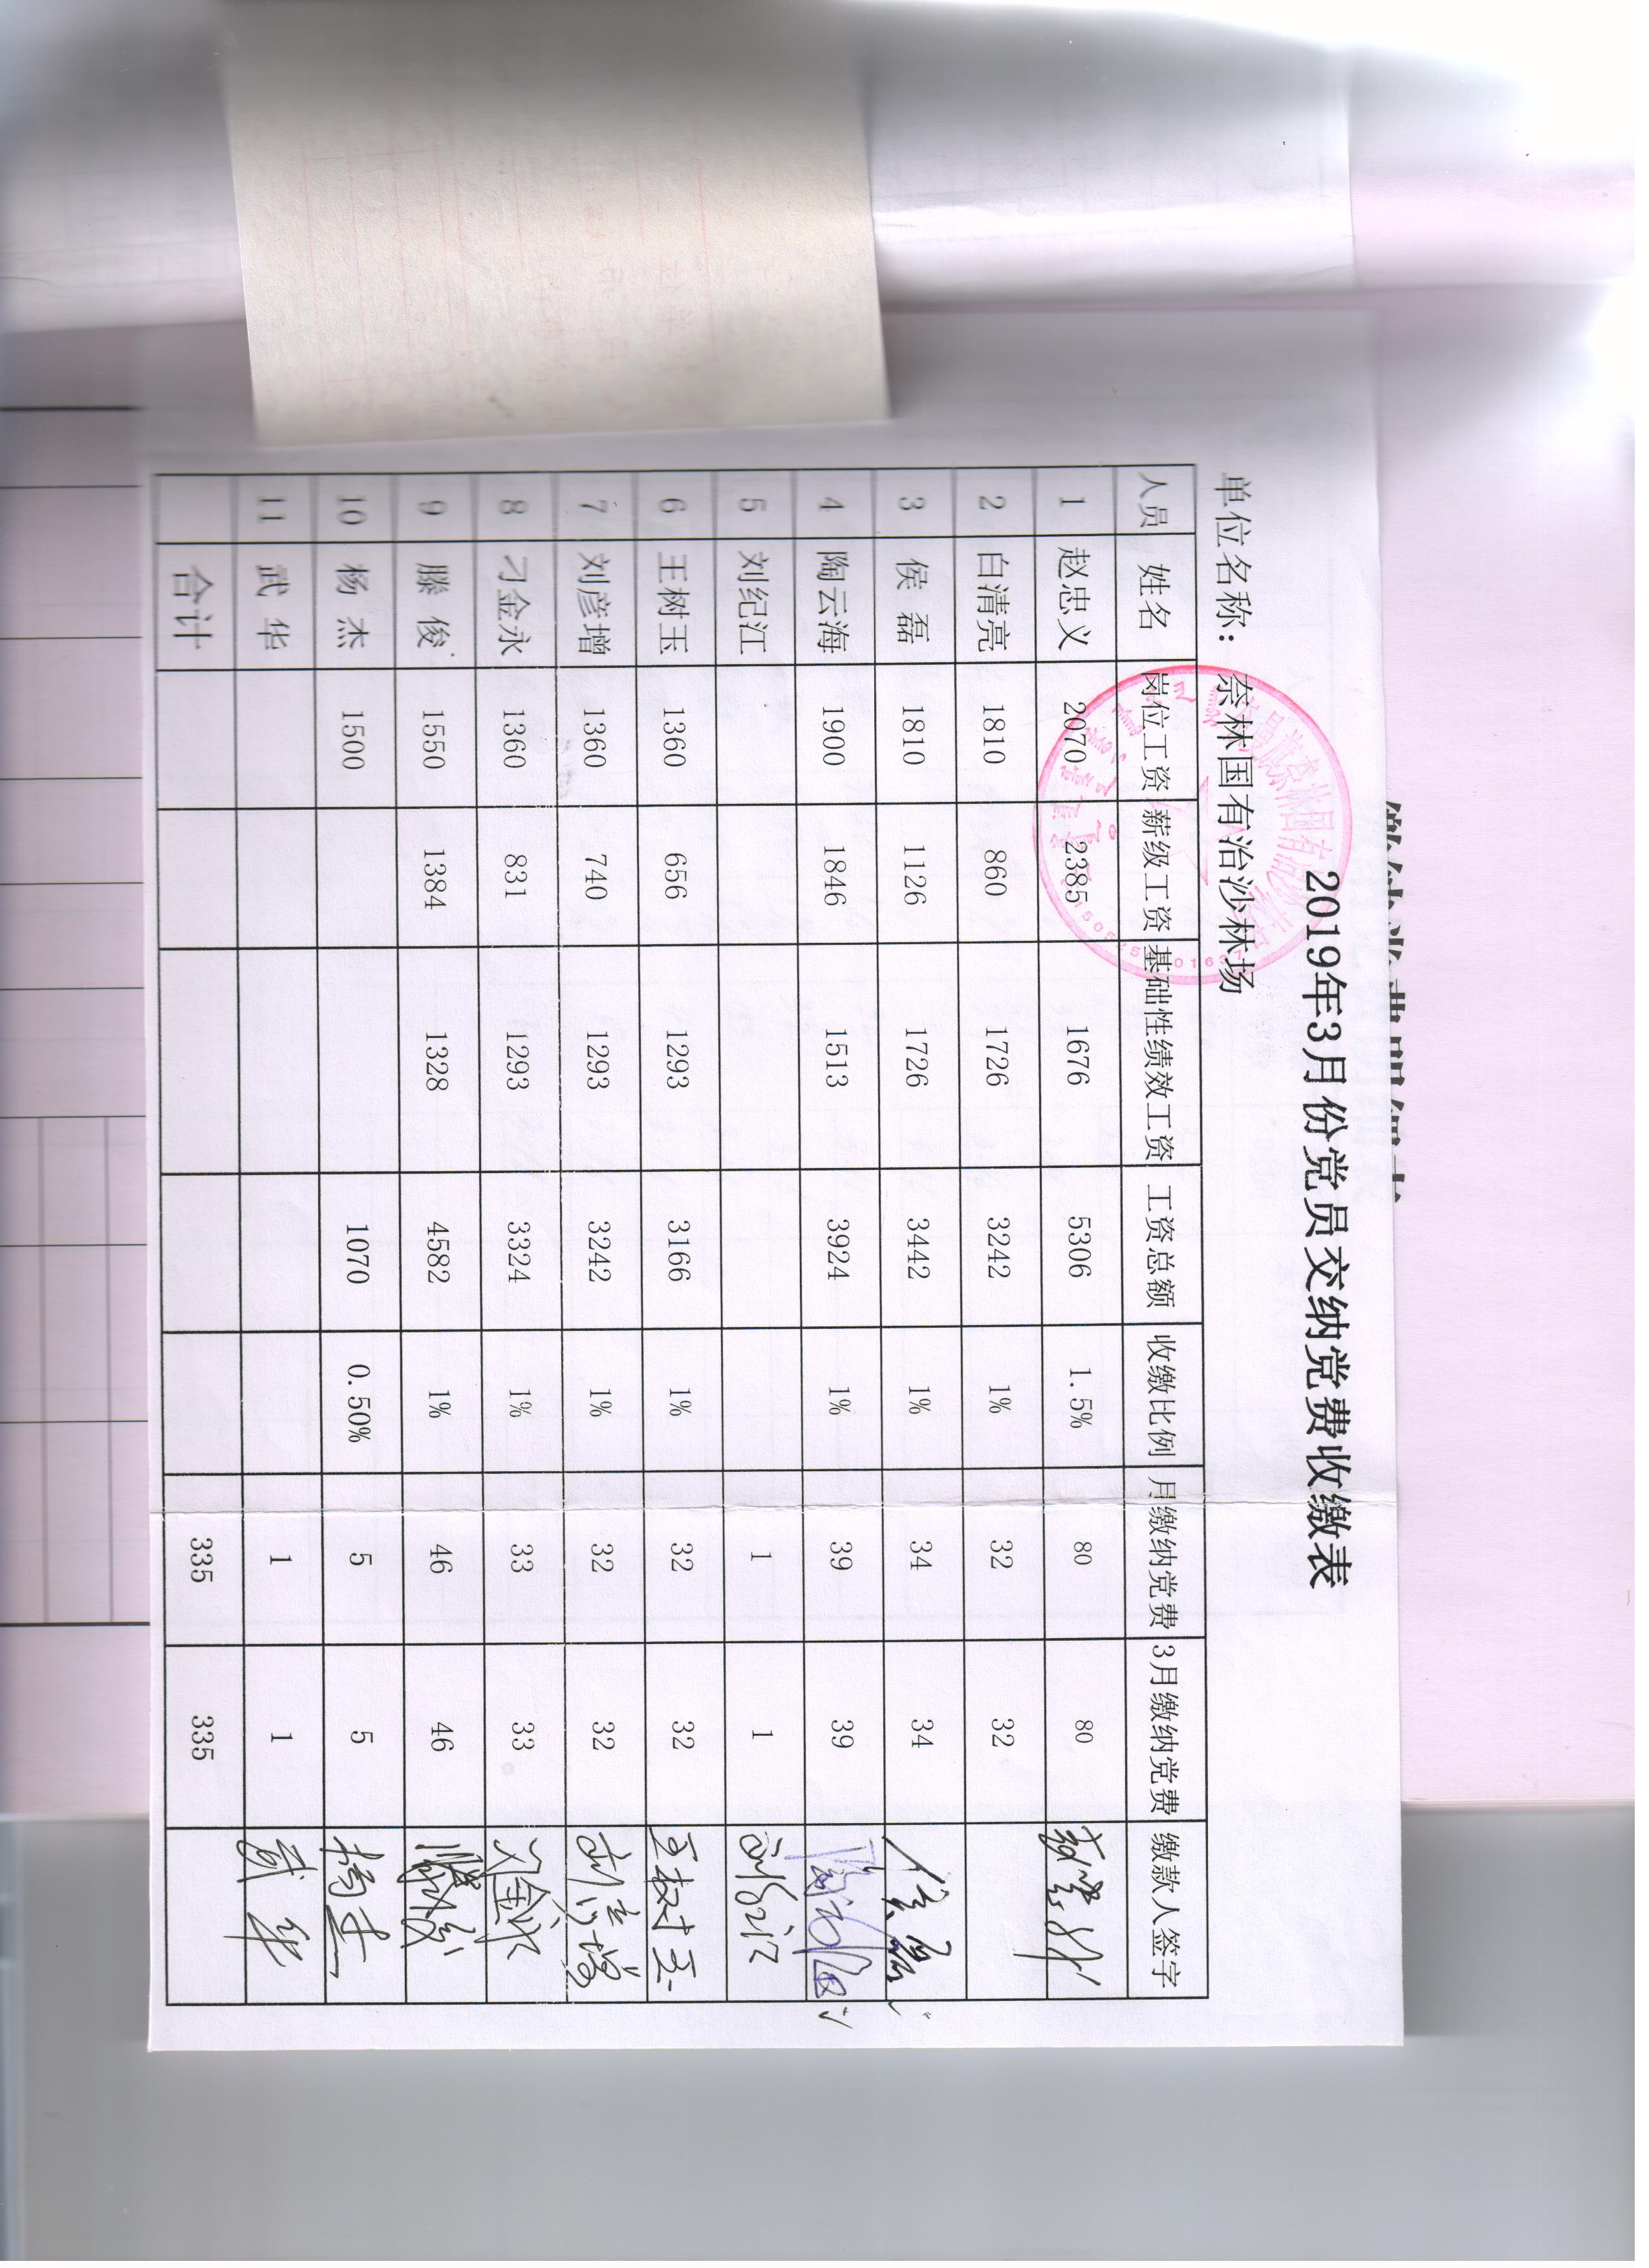 2019年3月份党员交纳党费收缴表
单位名称：奈林国有治沙林场
人员 姓名 岗位工资 薪级工资 基础性绩效工资 工资总额 收缴比例 月缴纳党费 3月缴纳党费 缴款人签字
1 赵忠义 2070 2385 1676 5306 1.5% 80 80
2 白清亮 1810 860 1726 3242 1% 32 32
3 侯 磊 1810 1126 1726 3442 1% 34 34 侯磊
4 陶云海 1900 1846 1513 3924 1% 39 39 陶云海
5 刘纪江 1 1 刘纪江
6 王树玉 1360 656 1293 3166 1% 32 32 王树玉
7 刘彦增 1360 740 1293 3242 1% 32 32 刘彦增
8 刁金永 1360 831 1293 3324 1% 33 33 刁金永
9 滕 俊 1550 1384 1328 4582 1% 46 46 滕俊
10 杨 杰 1500 1070 0.50% 5 5 杨杰
11 武 华 1 1 武华
合计 335 335